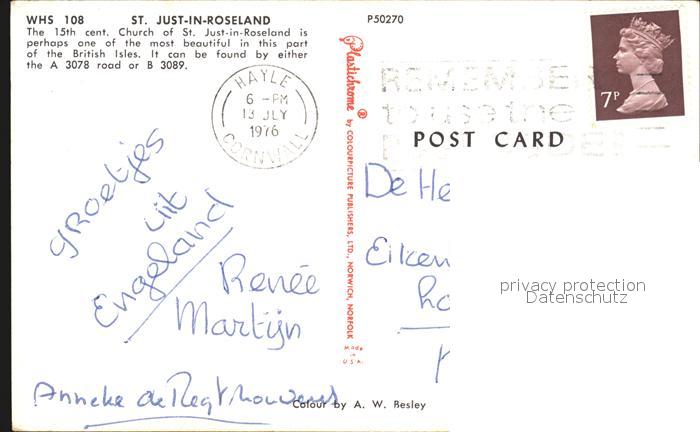 WHS 108 ST. JUST-IN-ROSELAND
The 15th cent. Church of St. Just-in-Roseland is
perhaps one of the most beautiful in this part
of the British Isles. It can be found by either
the A 3078 road or B 3089.
P50270
HAYLE
6 - PM
13 JLY
1976
CORNWALL
REMEMBER
to use the
7P
POST CARD
Plastichrome ® by COLOURPICTURE PUBLISHERS, LTD., NORWICH, NORFOLK
Made
in
U.S.A.
groetjes
uit
Engeland
Renée
Martijn
Anneke de
De He
Eiken
Colour by A. W. Besley
privacy protection
Datenschutz